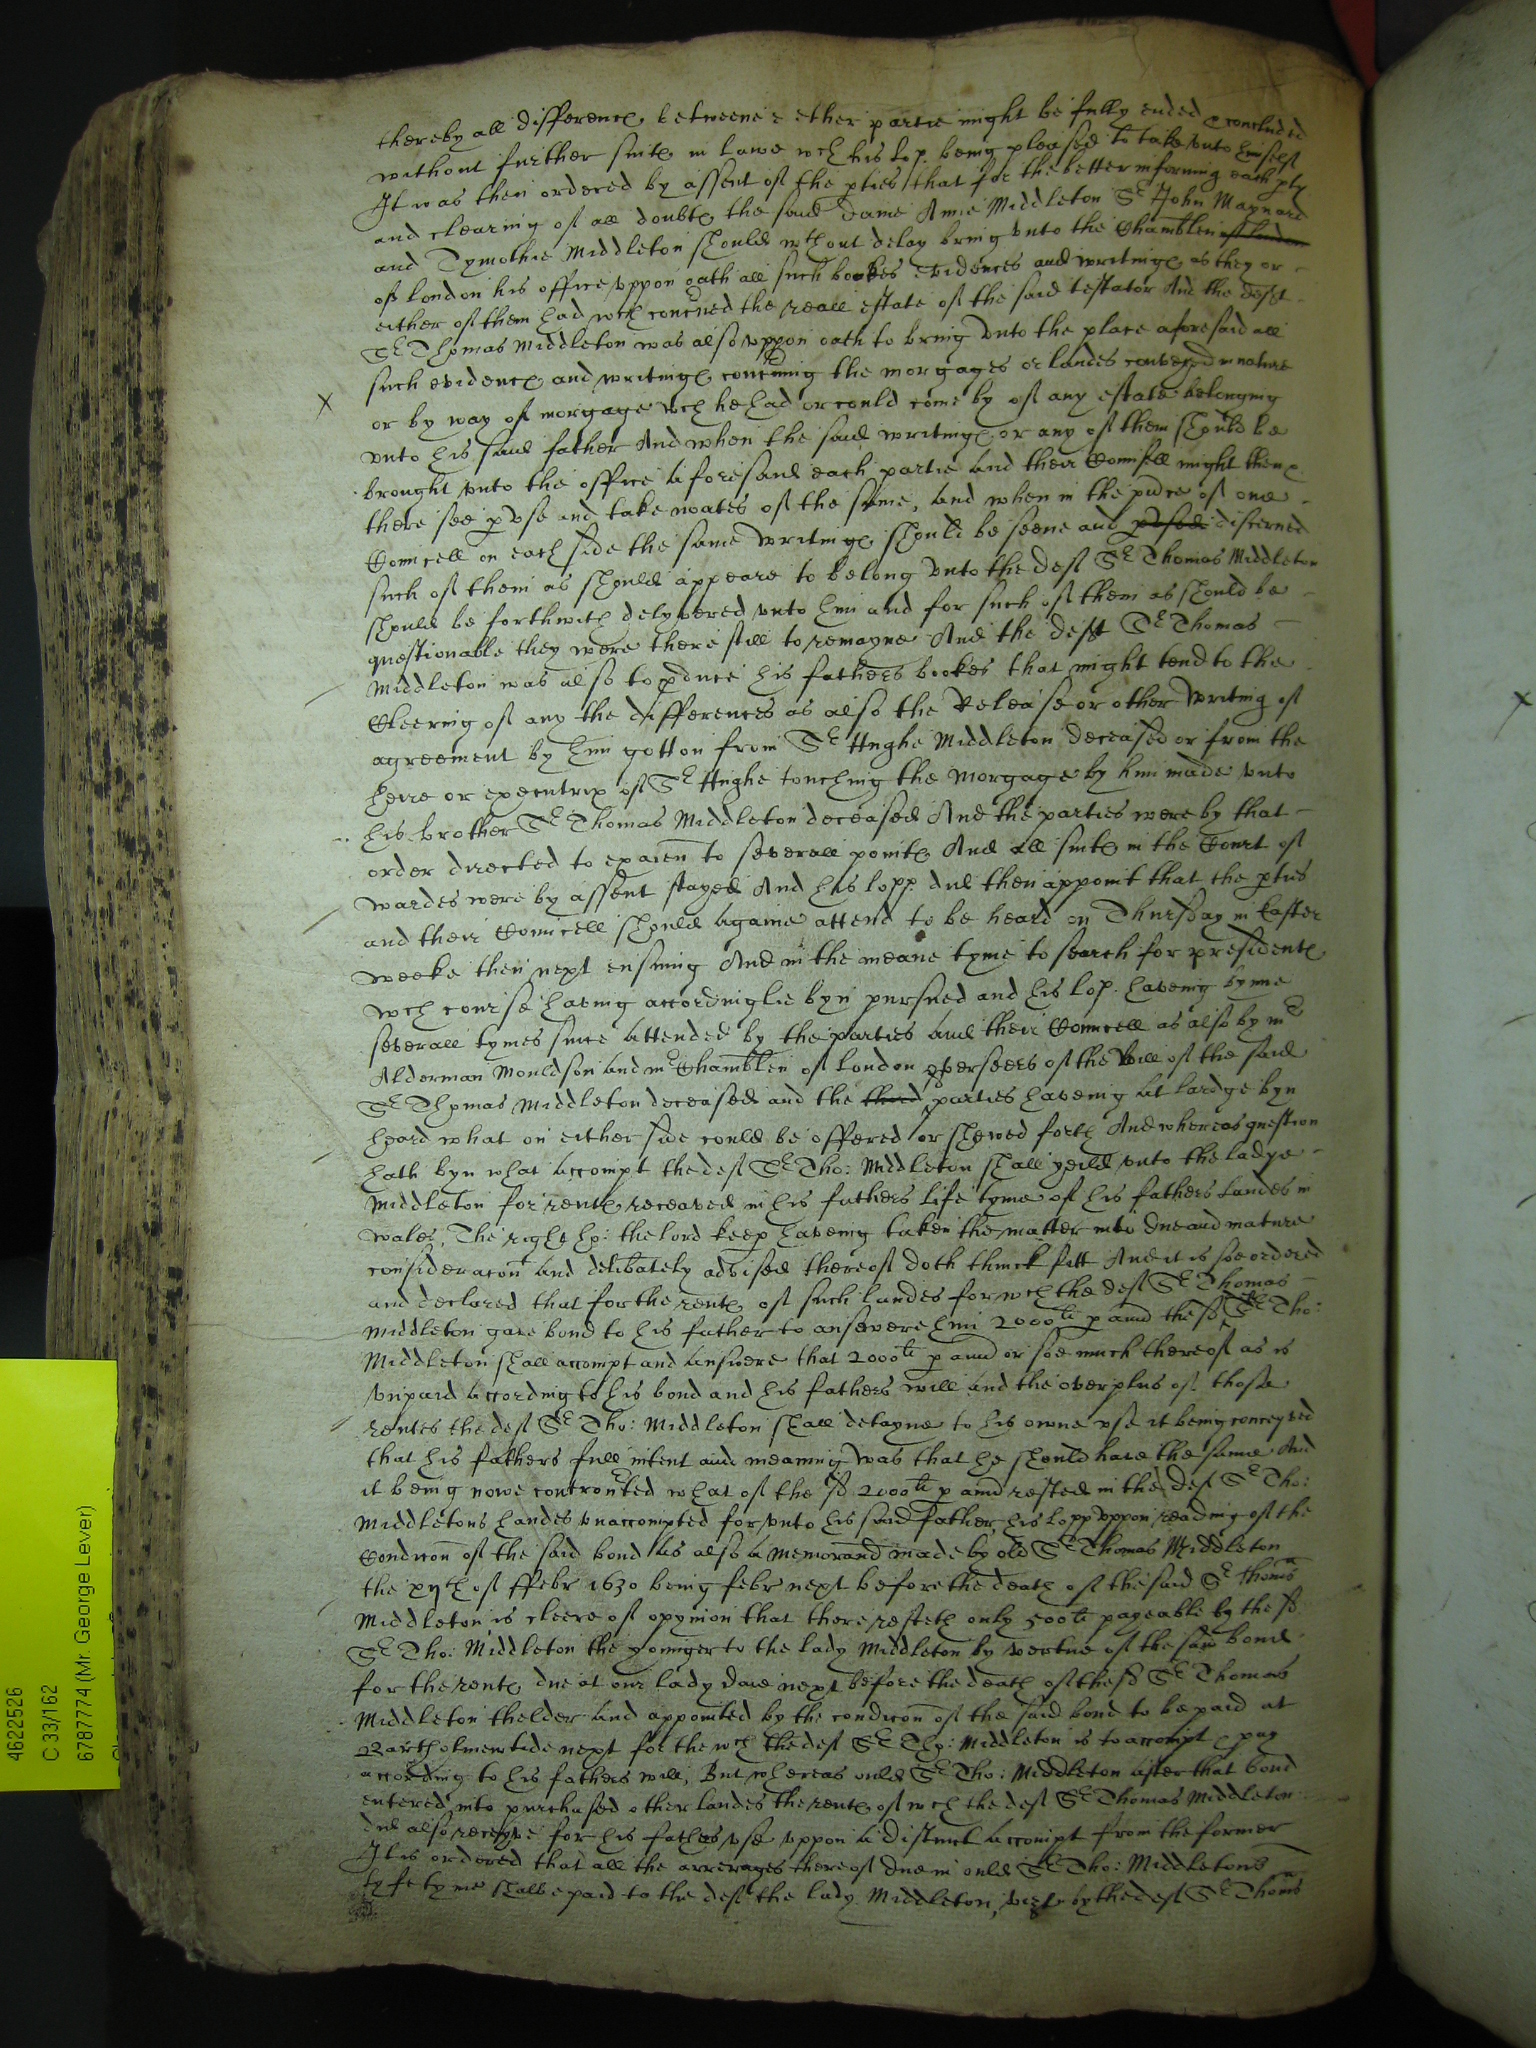 thereby all differenc betweene ether partie might be fully ended & concluded
without further suite in lawe wch his lop. being pleased to take unto himselfe
It was then ordered by assent of the pties that for the better informing each pty
and clearing of all doubts the said dame Anne Middleton Sr John Maynard
and Tymothie Middleton should wthout delay bring unto the Chamblen of London
of London his office uppon oath all such bookes evidences and writings as they or
either of them had wch concned the reall estate of the said testator And the deft
Sr Thomas Middleton was also uppon oath to bring unto the place aforesaid all
such evidences and writings concning the morgages or landes conveyed in nature
x
or by way of morgage wch he had or could come by of any estate belonging
unto his said father And when the said writings or any of them should be
brought unto the office aforesaid each partie and their Counsell might then
there see pvse and take noates of the same, and when in the pnce of one
Councell on each side the same writings should be seene and pvsed discerned
such of them as should appeare to belong unto the deft Sr Thomas Middleton
should be forthwith delyvered unto him and for such of them as should be
questionable they were there still to remayne And the deft Sr Thomas
Middleton was also to pduce his fathers bookes that might tend to the
Cleering of any the differences as also the Release or other writing of
agreement by him gotton from Sr Hughe Middleton deceased or from the
heire or executrix of Sr Hughe touching the Morgage by him made unto
his brother Sr Thomas Middleton deceased And the parties were by that
order directed to exaien to severall points And all suits in the Court of
wardes were by assent stayed And his lopp. did then appoint that the pties
and their Councell should againe attend to be heard on Thursday in Easter
weeke then next ensuing And in the meane tyme to search for presidents
wch course having accordinglie byn pursued and his lop. haveing bynne
severall tymes since attended by the parties and their Councell as also by mr
Alderman Mouldson and mr Chamblen of London overseers of the Will of the said
Sr Thomas Middleton deceased and the third parties haveing at lardge byn
heard what on either side could be offered or shewed forth And whereas question
hath byn what accompt the deft Sr Tho: Middleton shall yeild unto the ladye
Middleton for rents receaved in his fathers life tyme of his fathers landes in
wales, The right ho: the lord keep haveing taken the matter into due and mature
consideracon and delibately advised thereof doth thinck fitt And it is soe ordered
and declared that for the rents of such landes for wch the deft Sr Thomas
Middleton gave bond to his father to answere him 2000li p annu the sd Sr Tho:
Middleton shall accompt and answere that 2000li p annu or soe much thereof as is
unpaid according to his bond and his fathers will and the overplus of those
rentes the deft Sr Tho: Middleton shall detayne to his owne use it being conceyved
that his fathers full intent and meaning was that he should have the same And
it being nowe controverted what of the sd 2000li p annu rested in the deft Sr Tho:
Middletons handes unaccompted for unto his said father, his lopp uppon reading of the
Condicon of the said bond as also a Memorand made by old Sr Thomas Middleton
the xijth of ffebr 1630 being febr next before the death of the said Sr Thoms
Middleton is cleere of opynion that there resteth only 500li payeable by the sd
Sr Tho: Middleton the younger to the lady Middleton by vertue of the said bond
for the rents due at our lady daie next before the death of the sd Sr Thomas
Middleton thelder and appointed by the condicon of the said bond to be paid at
Bartholmewtide next for the wch the deft Sr Tho: Middleton is to accompt & pay
according to his fathers will, But whereas ould Sr Tho: Middleton after that bond
entered into purchased other landes the rents of wch the deft Sr Thomas Middleton
did also receyve for his fathers use uppon a distinct accompt from the former
It is ordered that all the arrerages thereof due in ould Sr Tho: Middletons
lyfe tyme shalbe paid to the deft the lady Middleton, by the deft Sr Thoms
4622526
C 33/162
6787774 (Mr. George Lever)